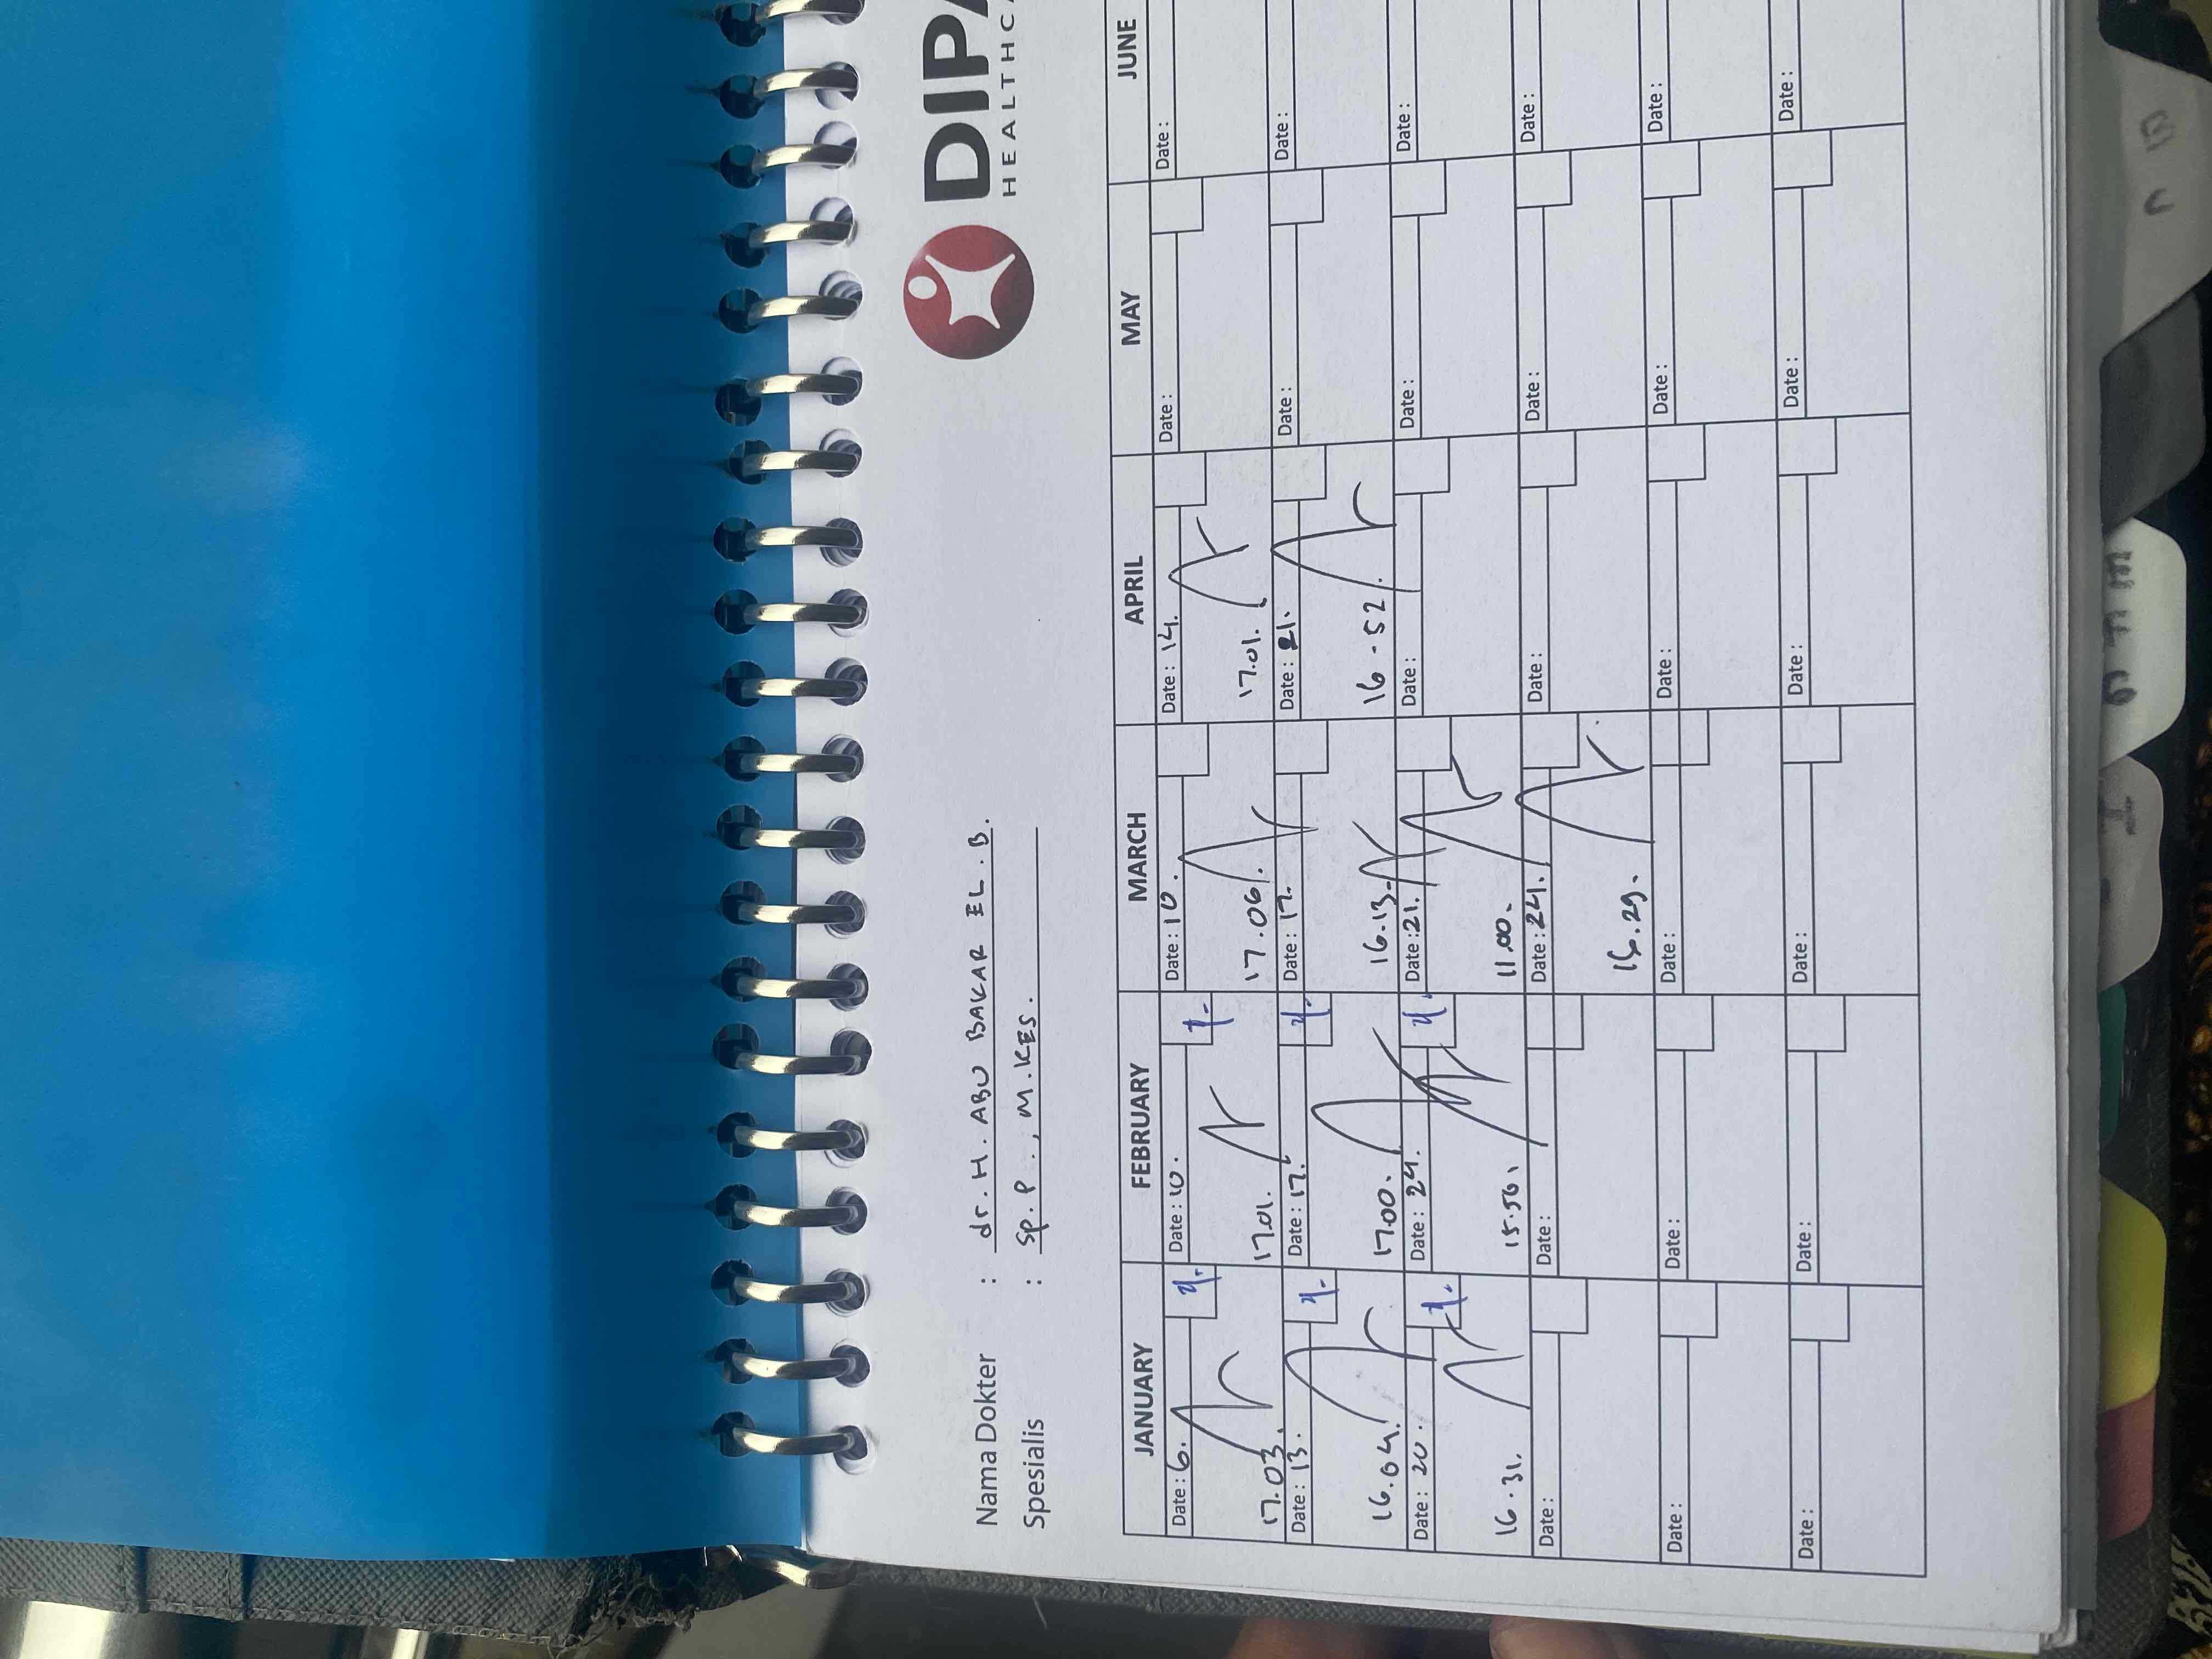 DIPA
HEALTHCA
Nama Dokter : dr. H. ABU BAKAR EL. B.
Spesialis : Sp. P., M.KES.
JANUARY FEBRUARY MARCH APRIL MAY JUNE
Date : 6. Date : 10. Date : 10. Date : 14. Date : Date :
17.03. 17.01. 17.06. 17.01.
Date : 13. Date : 17. Date : 17. Date : 21. Date : Date :
16.04. 17.00. 16.13 16.52
Date : 20. Date : 24. Date : 21. Date : Date : Date :
16.31. 15.50. 11.00.
Date : Date : Date : 24. Date : Date : Date :
Date : Date : Date : Date : Date : Date :
Date : Date : Date : Date : Date : Date :